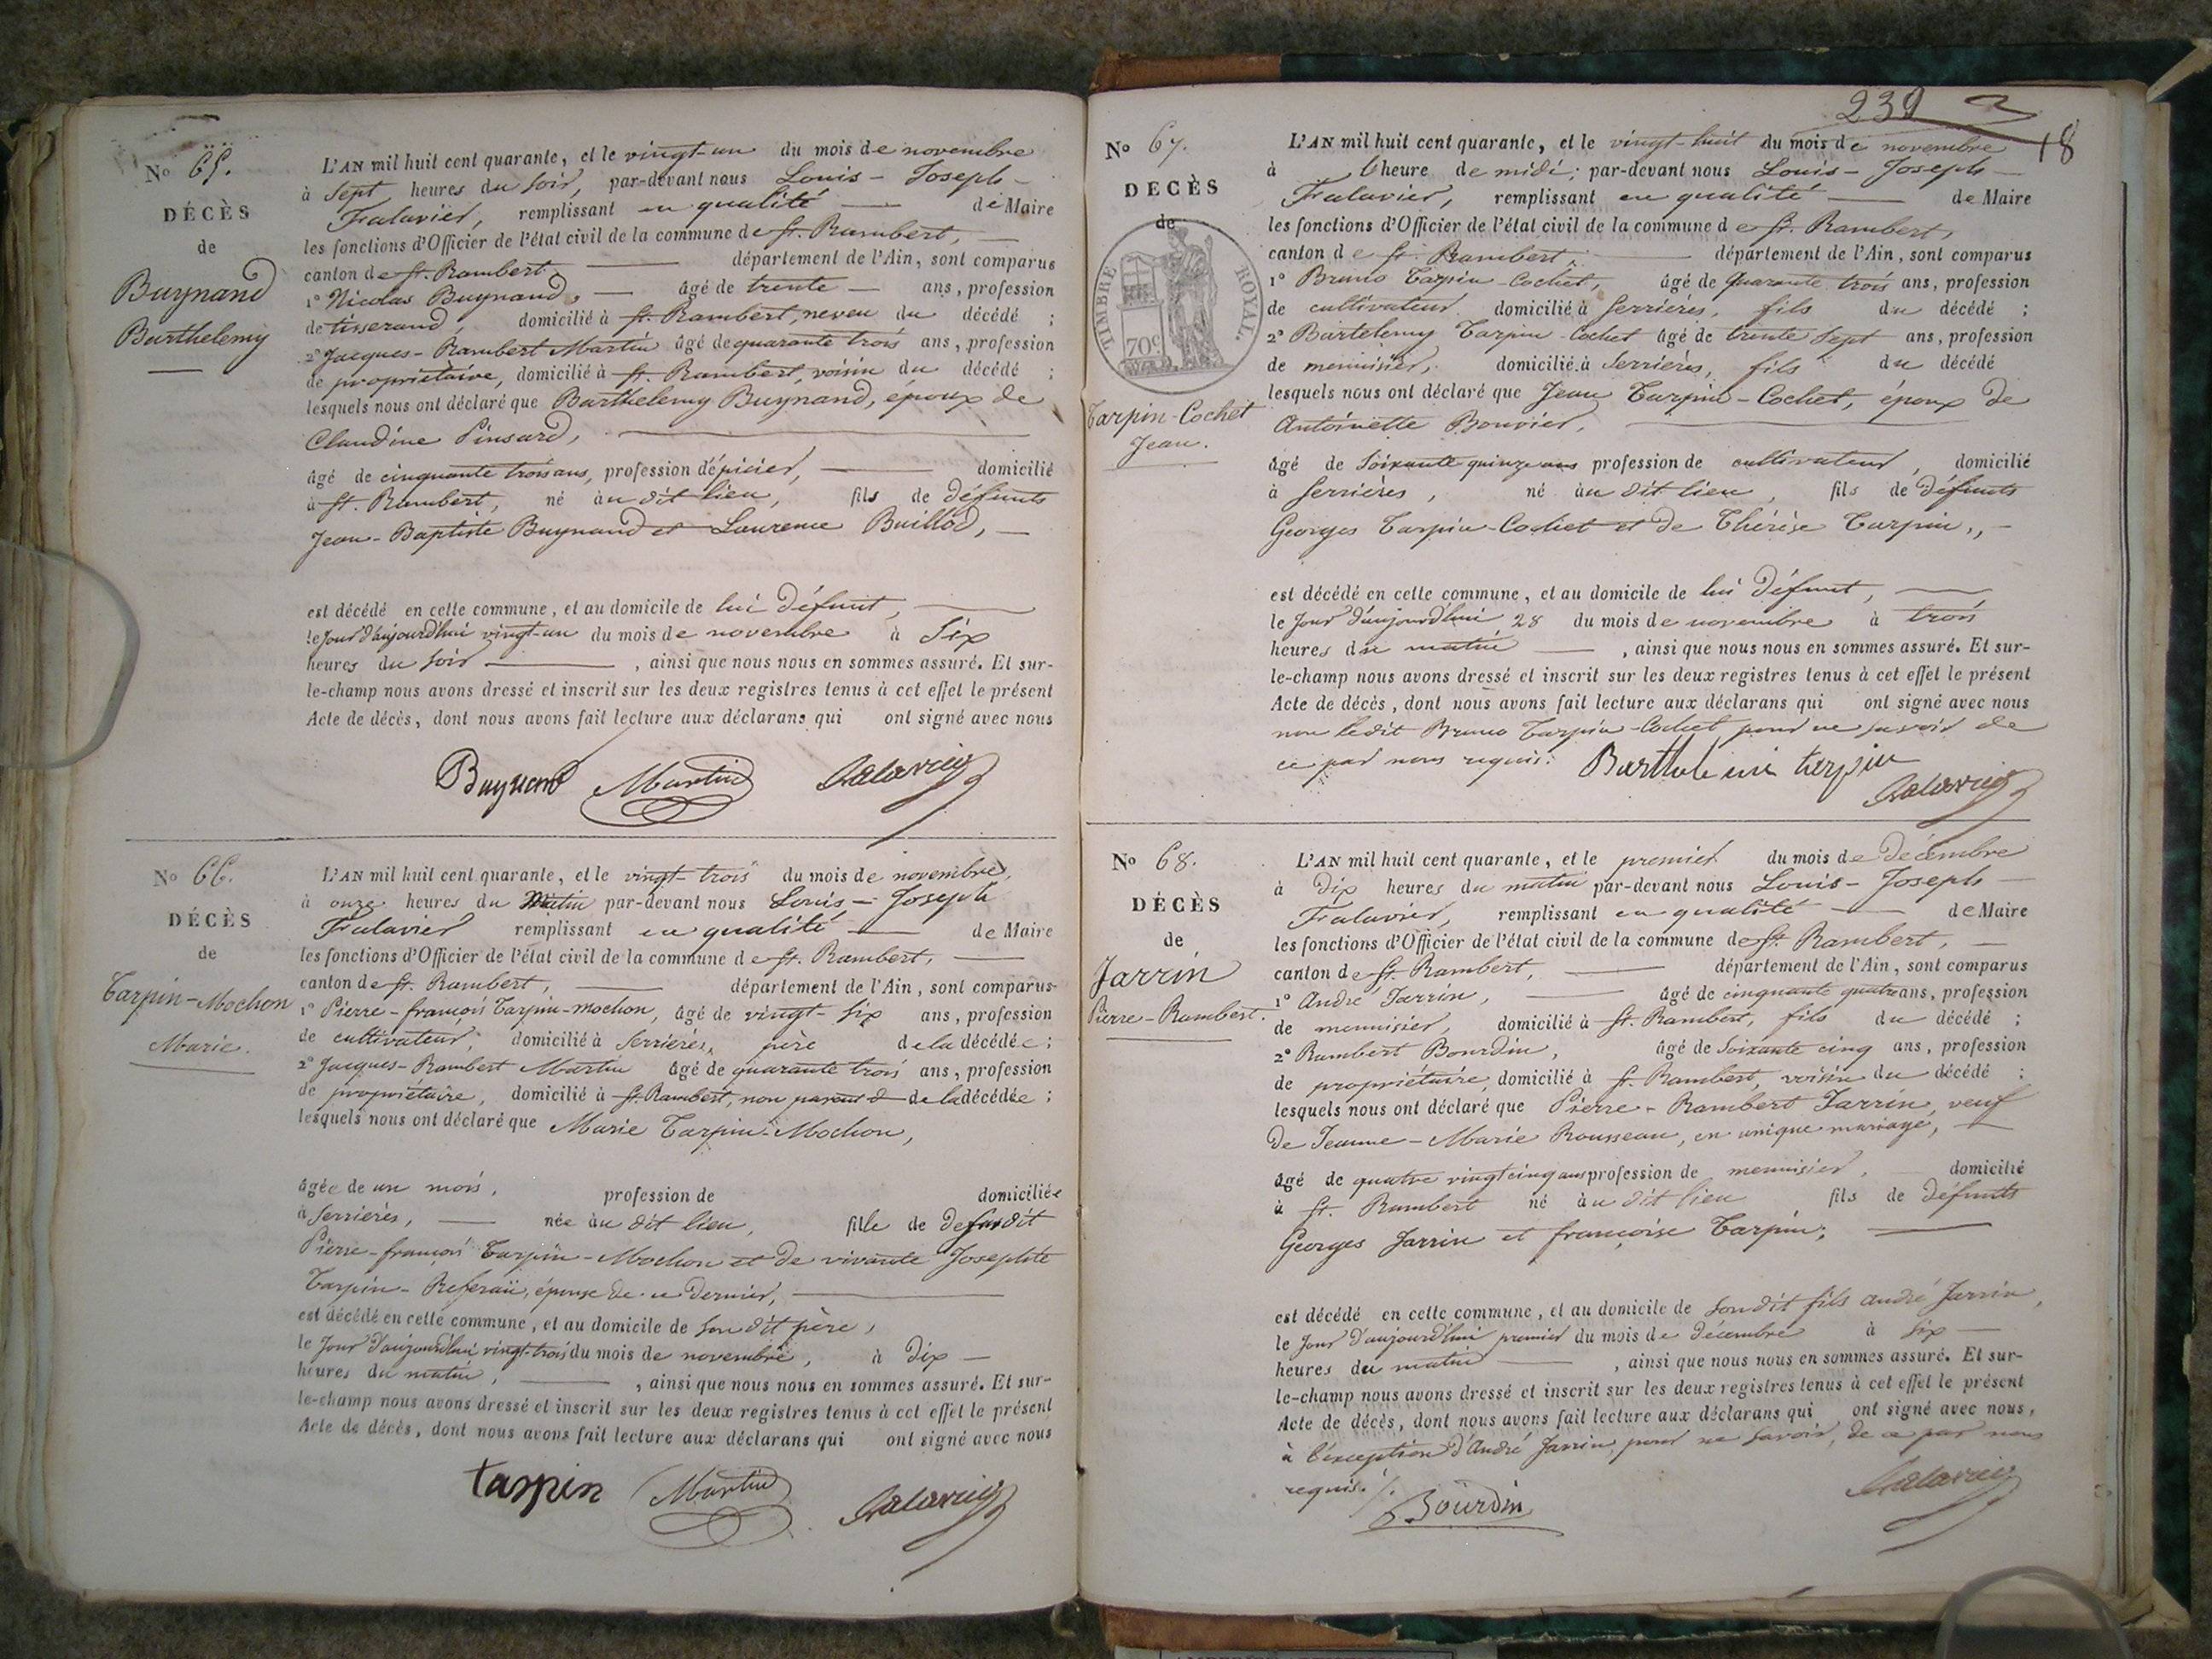 No 65.
DÉCÈS
de
Buynand
Barthelemy
L'AN mil huit cent quarante, et le vingt-un du mois de novembre
à sept heures du soir, par-devant nous Louis-Joseph
Falavier, remplissant en qualité de Maire
les fonctions d'Officier de l'état civil de la commune de St. Rambert,
canton de St. Rambert département de l'Ain, sont comparus
1° Nicolas Buynand, âgé de trente ans, profession
de tisserand, domicilié à St. Rambert, neveu du décédé ;
2° Jacques-Rambert Martin âgé de quarante trois ans, profession
de propriétaire, domicilié à St. Rambert, voisin du décédé ;
lesquels nous ont déclaré que Barthelemy Buynand, époux de
Claudine Pinsard,
âgé de cinquante trois ans, profession d'épicier, domicilié
à St. Rambert, né au dit lieu, fils de défunts
Jean-Baptiste Buynand et Laurence Buillod,
est décédé en cette commune, et au domicile de lui défunt,
le jour d'aujourd'hui vingt-un du mois de novembre à six
heures du soir, ainsi que nous nous en sommes assuré. Et sur-
le-champ nous avons dressé et inscrit sur les deux registres tenus à cet effet le présent
Acte de décès, dont nous avons fait lecture aux déclarans qui ont signé avec nous
Buynand Martin Falavier
No 66.
DÉCÈS
de
Tarpin-Mochon
Marie.
L'AN mil huit cent quarante, et le vingt-trois du mois de novembre,
à onze heures du Matin par-devant nous Louis-Joseph
Falavier remplissant en qualité de Maire
les fonctions d'Officier de l'état civil de la commune de St. Rambert,
canton de St. Rambert, département de l'Ain, sont comparus
1° Pierre-françois Tarpin-Mochon, âgé de vingt-six ans, profession
de cultivateur, domicilié à Serrières, père de la décédée ;
2° Jacques-Rambert Martin âgé de quarante trois ans, profession
de propriétaire, domicilié à St. Rambert, non parent de la décédée ;
lesquels nous ont déclaré que Marie Tarpin-Mochon,
âgée de un mois, profession de domiciliée
à Serrières, née au dit lieu, fille de
Pierre-françois Tarpin-Mochon et de vivante Josephte
Tarpin- épouse de ce dernier,
est décédé en cette commune, et au domicile de son dit père,
le jour d'aujourd'hui vingt-trois du mois de novembre, à dix
heures du matin, ainsi que nous nous en sommes assuré. Et sur-
le-champ nous avons dressé et inscrit sur les deux registres tenus à cet effet le présent
Acte de décès, dont nous avons fait lecture aux déclarans qui ont signé avec nous
tarpin Martin Falavier
239
18
No 67.
DÉCÈS
de
TIMBRE ROYAL.
70c
Tarpin-Cochet
Jean.
L'AN mil huit cent quarante, et le vingt-huit du mois de novembre
à heure de midi ; par-devant nous Louis-Joseph
Falavier, remplissant en qualité de Maire
les fonctions d'Officier de l'état civil de la commune de St. Rambert,
canton de St. Rambert, département de l'Ain, sont comparus
1° Bruno Tarpin-Cochet, âgé de quarante trois ans, profession
de cultivateur domicilié à Serrières, fils du décédé ;
2° Bartelemy Tarpin-Cochet âgé de trente sept ans, profession
de menuisier, domicilié à Serrières, fils du décédé
lesquels nous ont déclaré que Jean Tarpin-Cochet, époux de
Antoinette Bouvier,
âgé de soixante quinze ans profession de cultivateur, domicilié
à Serrières, né au dit lieu, fils de défunts
Georges Tarpin-Cochet et de Thérèse Tarpin,
est décédé en cette commune, et au domicile de lui défunt,
le jour d'aujourd'hui 28 du mois de novembre à trois
heures du matin, ainsi que nous nous en sommes assuré. Et sur-
le-champ nous avons dressé et inscrit sur les deux registres tenus à cet effet le présent
Acte de décès, dont nous avons fait lecture aux déclarans qui ont signé avec nous
non ledit Bruno Tarpin-Cochet pour ne savoir de
ce par nous requis. Barthelemi tarpin
Falavier
No 68.
DÉCÈS
de
Jarrin
Pierre-Rambert.
L'AN mil huit cent quarante, et le premier du mois de Décembre
à Dix heures du matin par-devant nous Louis-Joseph
Falavier, remplissant en qualité de Maire
les fonctions d'Officier de l'état civil de la commune de St. Rambert,
canton de St. Rambert, département de l'Ain, sont comparus
1° André Jarrin, âgé de cinquante quatre ans, profession
de menuisier, domicilié à St. Rambert, fils du décédé ;
2° Rambert Bourdin, âgé de soixante cinq ans, profession
de propriétaire, domicilié à St. Rambert, voisin du décédé ;
lesquels nous ont déclaré que Pierre-Rambert Jarrin, veuf
de Jeanne-Marie Rousseau, en unique mariage,
âgé de quatre vingt cinq ans profession de menuisier, domicilié
à St. Rambert né au dit lieu fils de défunts
Georges Jarrin et françoise Tarpin,
est décédé en cette commune, et au domicile de son dit fils andré Jarrin,
le jour d'aujourd'hui premier du mois de Décembre à six
heures du matin, ainsi que nous nous en sommes assuré. Et sur-
le-champ nous avons dressé et inscrit sur les deux registres tenus à cet effet le présent
Acte de décès, dont nous avons fait lecture aux déclarans qui ont signé avec nous,
à l'exception d'André Jarrin, pour ne savoir, de ce par nous
requis./.
Bourdin Falavier